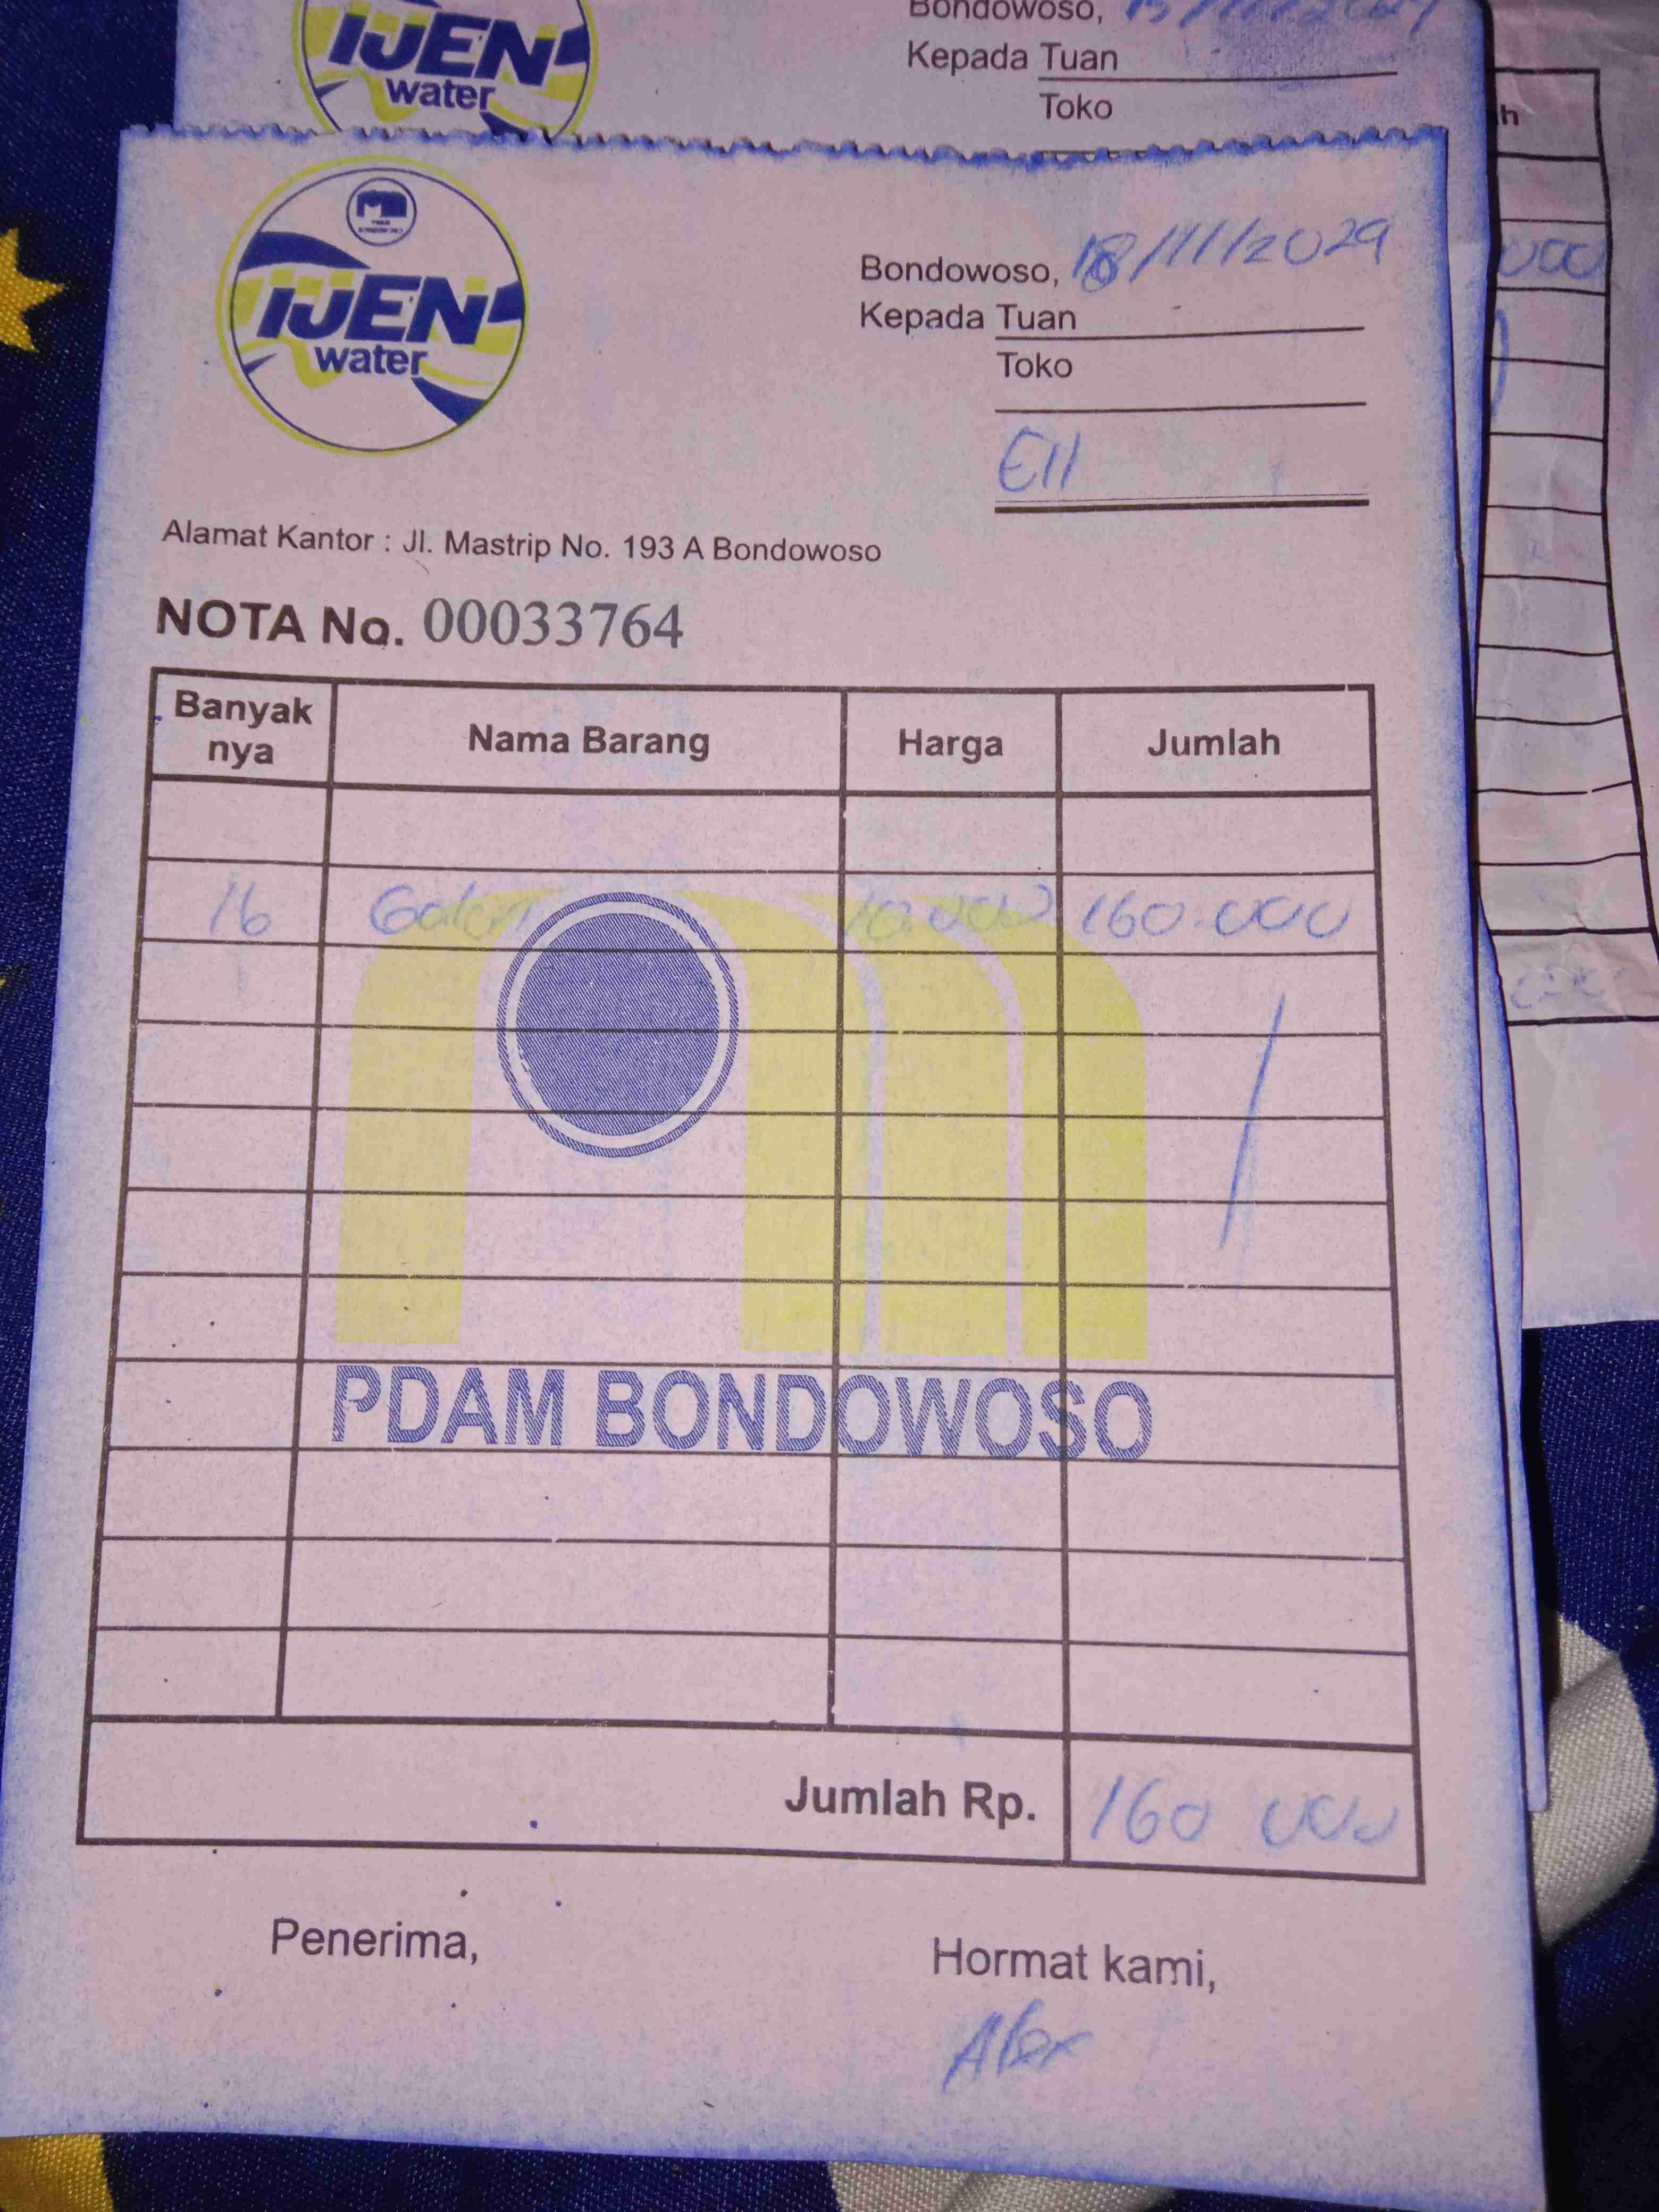 IJEN
water
Bondowoso,
Kepada Tuan
Toko
h
IJEN
water
Bondowoso, 18/11/2024
Kepada Tuan
Toko
Ell
Alamat Kantor : Jl. Mastrip No. 193 A Bondowoso
NOTA No. 00033764
Banyak nya Nama Barang Harga Jumlah
16 Galon 10.000 160.000
PDAM BONDOWOSO
Jumlah Rp. 160 000
Penerima,
Hormat kami,
Alex